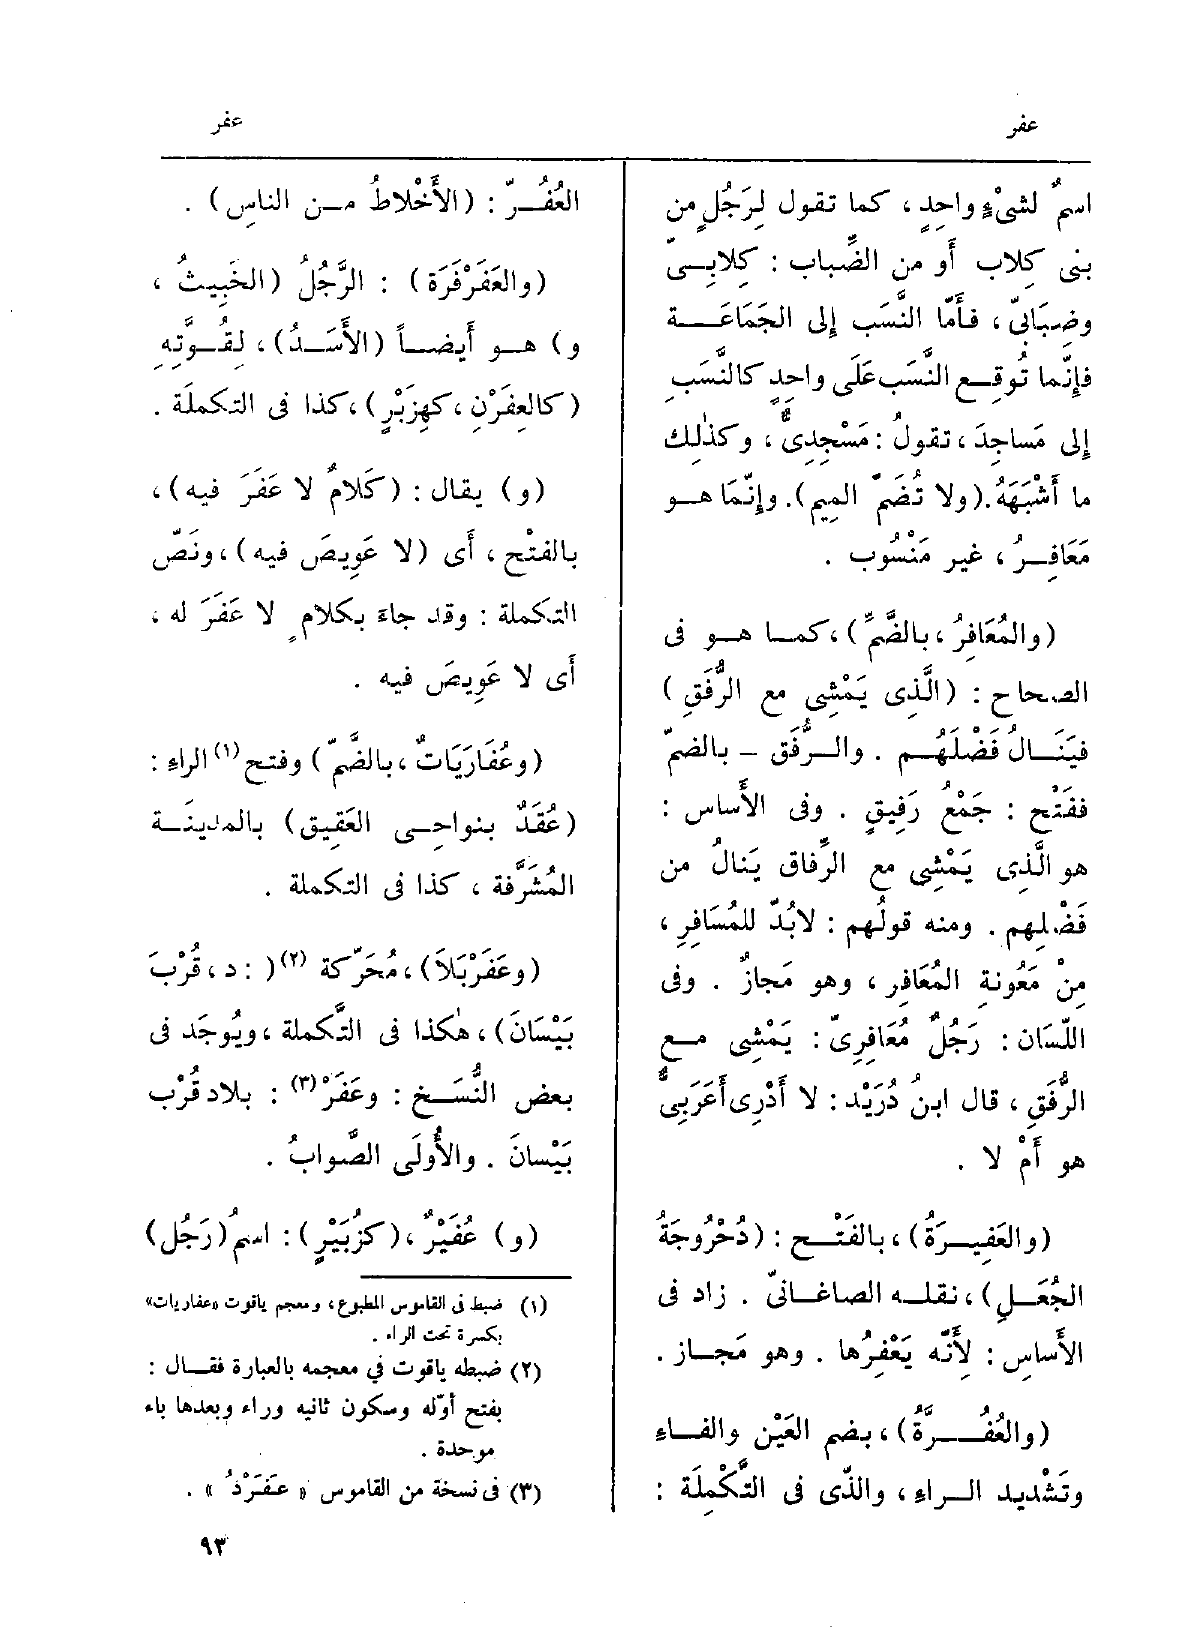 عفر
عفر
اسمٌ لشىْءٍ واحِدٍ ، كما تقول لِرَجُلٍ من
بنى كِلاب أو من الضِّباب : كِلابىّ
وضِبَابىّ ، فأَمّا النَّسَب إلى الجَمَاعَة
فإنّما تُوقِع النَّسَب عَلَى واحِدٍ كالنَّسَبِ
إلى مَساجِدَ ، تقولُ : مَسْجِدىٌّ ، وكذٰلِك
ما أَشْبَهَهُ . (ولا تُضَمّ المِيم) . وإنّمَا هو
مَعَافِرُ ، غير مَنْسُوب .
(والمُعَافِرُ ، بالضَّمِّ) ، كما هو فى
الصحاح : (الَّذِى يَمْشِى مع الرُّفَقِ)
فيَنَالُ فَضْلَهُم . والرُّفَق – بالضمّ
ففَتْح : جَمْعُ رَفِيقٍ . وفى الأَساس :
هو الَّذِى يَمْشِى مع الرِّفاق يَنالُ من
فَضْلِهم . ومنه قولُهم : لابُدّ للمُسَافِرِ ،
مِنْ مَعُونةِ المُعَافِر ، وهو مَجازٌ . وفى
اللّسَان : رَجُلٌ مُعَافِرِىّ : يَمْشِى مع
الرُّفَقِ ، قال ابنُ دُرَيْد : لا أَدْرِى أَعَرَبىٌّ
هو أَمْ لا .
(والعَفِيرَةُ) ، بالفَتْح : (دُحْرُوجَةُ
الجُعَلِ) ، نقله الصاغانىّ . زاد فى
الأَساس : لأَنَّه يَعْفِرُها . وهو مَجاز .
(والعُفُرَّةُ) ، بضم العَيْن والفاء
وتَشْديد الراءِ ، والذّى فى التَّكْمِلَة :
العُفُرّ : (الأَخْلاطُ من الناسِ) .
(والعَفَرْفَرَة) : الرَّجُلُ (الخَبِيثُ ،
و) هو أيضاً (الأَسَدُ) ، لِقُوَّتِه
(كالعِفِرْنِ ، كهِزَبْرٍ) ، كذا فى التكملَة .
(و) يقال : (كَلامٌ لا عَفَرَ فيه) ،
بالفتْح ، أى (لا عَوِيصَ فيه) ، ونَصّ
التكملة : وقد جاءَ بكلامٍ لا عَفَرَ له ،
أى لا عَوِيصَ فيه .
(وعُفَارَيَاتٌ ، بالضَّمّ) وفتح (١) الراءِ :
(عُقَدٌ بنواحِى العَقِيق) بالمدينَة
المُشَرَّفة ، كذا فى التكملة .
(وعَفَرْبَلَا) ، مُحَرّكة (٢) ( : د ، قُرْبَ
بَيْسَانَ) ، هٰكذا فى التَّكملة ، ويُوجَد فى
بعض النُّسَخ : وعَفَرْ (٣) : بلاد قُرْب
بَيْسانَ . والأُولَى الصَّوابُ .
(و) عُفَيْرٌ ، (كزُبَيْرٍ) : اسمُ (رَجُل)
(١) ضبط فى القاموس المطبوع ، ومعجم ياقوت «عفاريات»
بكسرة تحت الراء .
(٢) ضبطه ياقوت في معجمه بالعبارة فقال :
بفتح أوّله وسكون ثانيه وراء وبعدها باء
موحدة .
(٣) فى نسخة من القاموس « عَفَرْدُ » .
٩٣